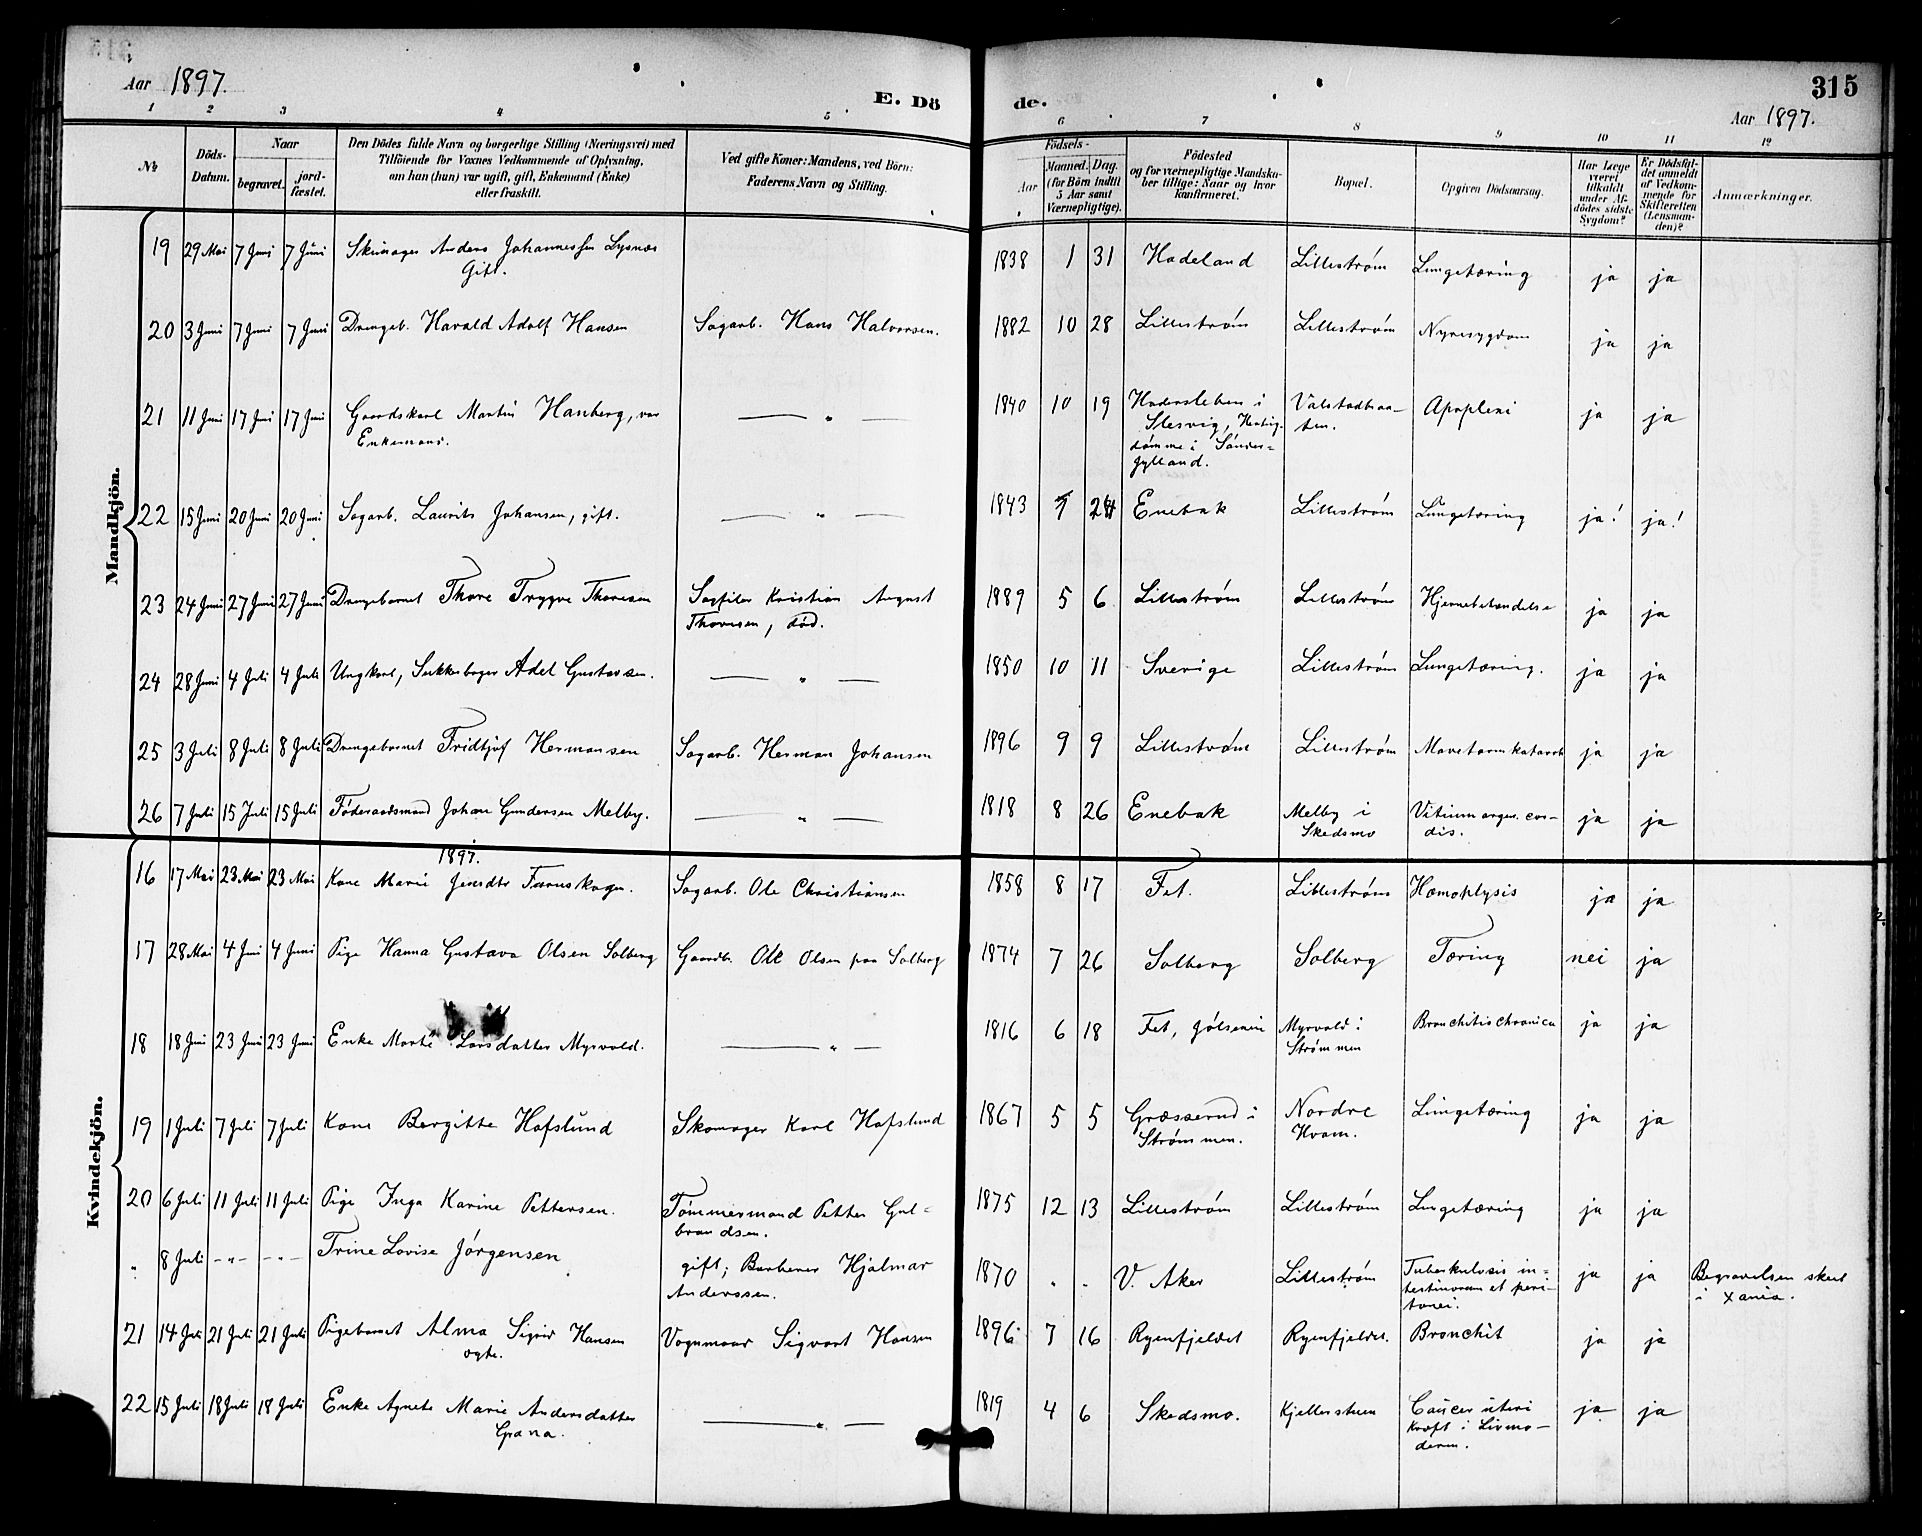 Aar 1897.
E. Dö
de.
315
Aar 1897.
1 2 3 4 5 6 7 8 9 10 11 12
№
Döds-
Datum.
Naar
begravet.
jord-
fæstet.
Den Dödes fulde Navn og borgerlige Stilling (Næringsvei) med
Tilföiende for Voxnes Vedkommende af Oplysning,
om han (hun) var ugift, gift, Enkemand (Enke)
eller fraskilt.
Ved gifte Koner: Mandens, ved Börn:
Faderens Navn og Stilling.
Födsels-
Aar
Maaned.
Dag.
(for Börn indtil
5 Aar samt
Værnepligtige).
Födested
og for værnepligtige Mandska-
ber tillige: Naar og hvor
konfirmeret.
Bopæl.
Opgiven Dödsaarsag.
Har Læge
været
tilkaldt
under Af-
dödes sidste
Sygdom?
Er Dödsfal-
det anmeldt
af Vedkom-
mende for
Skifteretten
(Lensman-
den)?
Anmærkninger.
Mandkjön.
19 29 Mai 7 Juni 7 Juni Skomager Anders Johannessen Lysnæs 1838 1 31 Hadeland Lillestrøm Lungetæring ja ja
Gift.
20 3 Juni 7 Juni 7 Juni Drengeb. Harald Adolf Hansen Sagarb. Hans Halvorsen. 1882 10 28 Lillestrøm Lillestrøm Nyresygdom ja ja
21 11 Juni 17 Juni 17 Juni Gaardskarl Martin Hanberg, var — " — 1840 10 19 Hadersleben i Valstadbraa- Apoplexi ja ja
Enkemand. Slesvig, Hertug- ten.
dømme i Sönder-
jylland.
22 15 Juni 20 Juni 20 Juni Sagarb. Laurits Johansen, gift. — " — 1843 24 Enebak Lillestrøm Lungetæring ja! ja!
23 24 Juni 27 Juni 27 Juni Drengebarnet Thore Trygve Thoresen Sagfiler Kristian August 1889 5 6 Lillestrøm Lillestrøm Hjernebetændelse ja ja
Thoresen, död.
24 28 Juni 4 Juli 4 Juli Ungkarl, Adel Gustavsen. — " — 1850 10 11 Sverige Lillestrøm Lungetæring. ja ja
25 3 Juli 8 Juli 8 Juli Drengebarnet Fridtjof Hermansen Sagarb. Herman Johansen 1896 9 9 Lillestrøm Lillestrøm Mavetarmkatarrh ja ja
26 7 Juli 15 Juli 15 Juli Föderaadsmand Johan Gundersen Melby. — " — 1818 8 26 Enebak Melby i Vitium organ. cor- ja ja
Skedsmo dis.
Kvindekjön.
1897.
16 17 Mai 23 Mai 23 Mai Kone Marie Jensdtr Furuskogen. Sagarb. Ole Christiansen 1858 8 17 Fet. Lillestrøm Hæmoptysis ja ja
17 28 Mai 4 Juni 4 Juni Pige Hanna Gustava Olsen Solberg Gaardb. Ole Olsen paa Solberg 1874 7 26 Solberg Solberg Tæring nei ja
18 18 Juni 23 Juni 23 Juni Enke Marte Larsdatter Myrvold. — " — 1816 6 18 Fet, Jølsenin Myrvold i Bronchitis chronica ja ja
Strømmen
19 1 Juli 7 Juli 7 Juli Kone Bergitte Hofslund Skomager Karl Hofslund 1867 5 5 Græsserud i Nordre Lungetæring ja ja
Strømmen. Hvam.
20 6 Juli 11 Juli 11 Juli Pige Inga Karine Pettersen. Tömmermand Petter Gul- 1875 12 13 Lillestrøm Lillestrøm Lungetæring ja ja
brandsen.
" 8 Juli - " - - " - Trine Lovise Jørgensen gift; Barberer Hjalmar 1870 . . V. Aker Lillestrøm Tuberkulosis in- ja ja Begravelsen skeet
Anderssen. testinorum et peri- i Xania.
tonei.
21 14 Juli 21 Juli 21 Juli Pigebarnet Alma Sigrid Hansen Vognmand Sigvart Hansen 1896 7 16 Ryenfjeldet Ryenfjeldet. Bronchit ja ja
ægte.
22 15 Juli 18 Juli 18 Juli Enke Agnete Marie Andersdatter — " — 1819 4 6 Skedsmo. Kjellerstuen Cancer uteri ja ja
Grana. Kræft i Livmo-
deren.